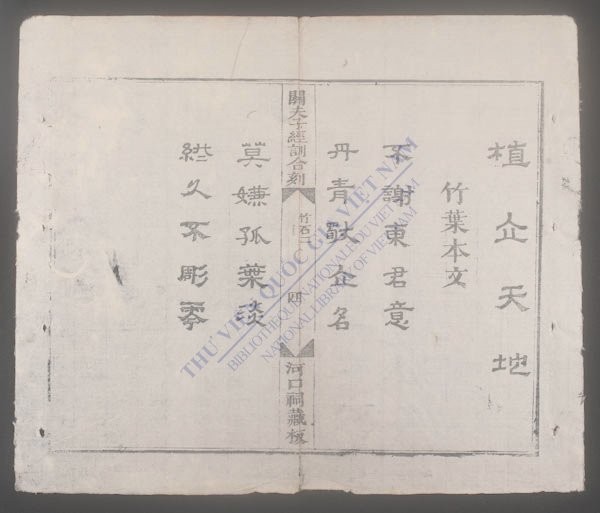 植立天地
竹葉本文
不謝東君意
丹青獨立名
關夫子經訓合刻
竹
河口祠藏板
莫嫌孤葉淡
終久不彫零
THƯ VIỆN QUỐC GIA VIỆT NAM
BIBLIOTHÈQUE NATIONALE DU VIETNAM
NATIONAL LIBRARY OF VIETNAM